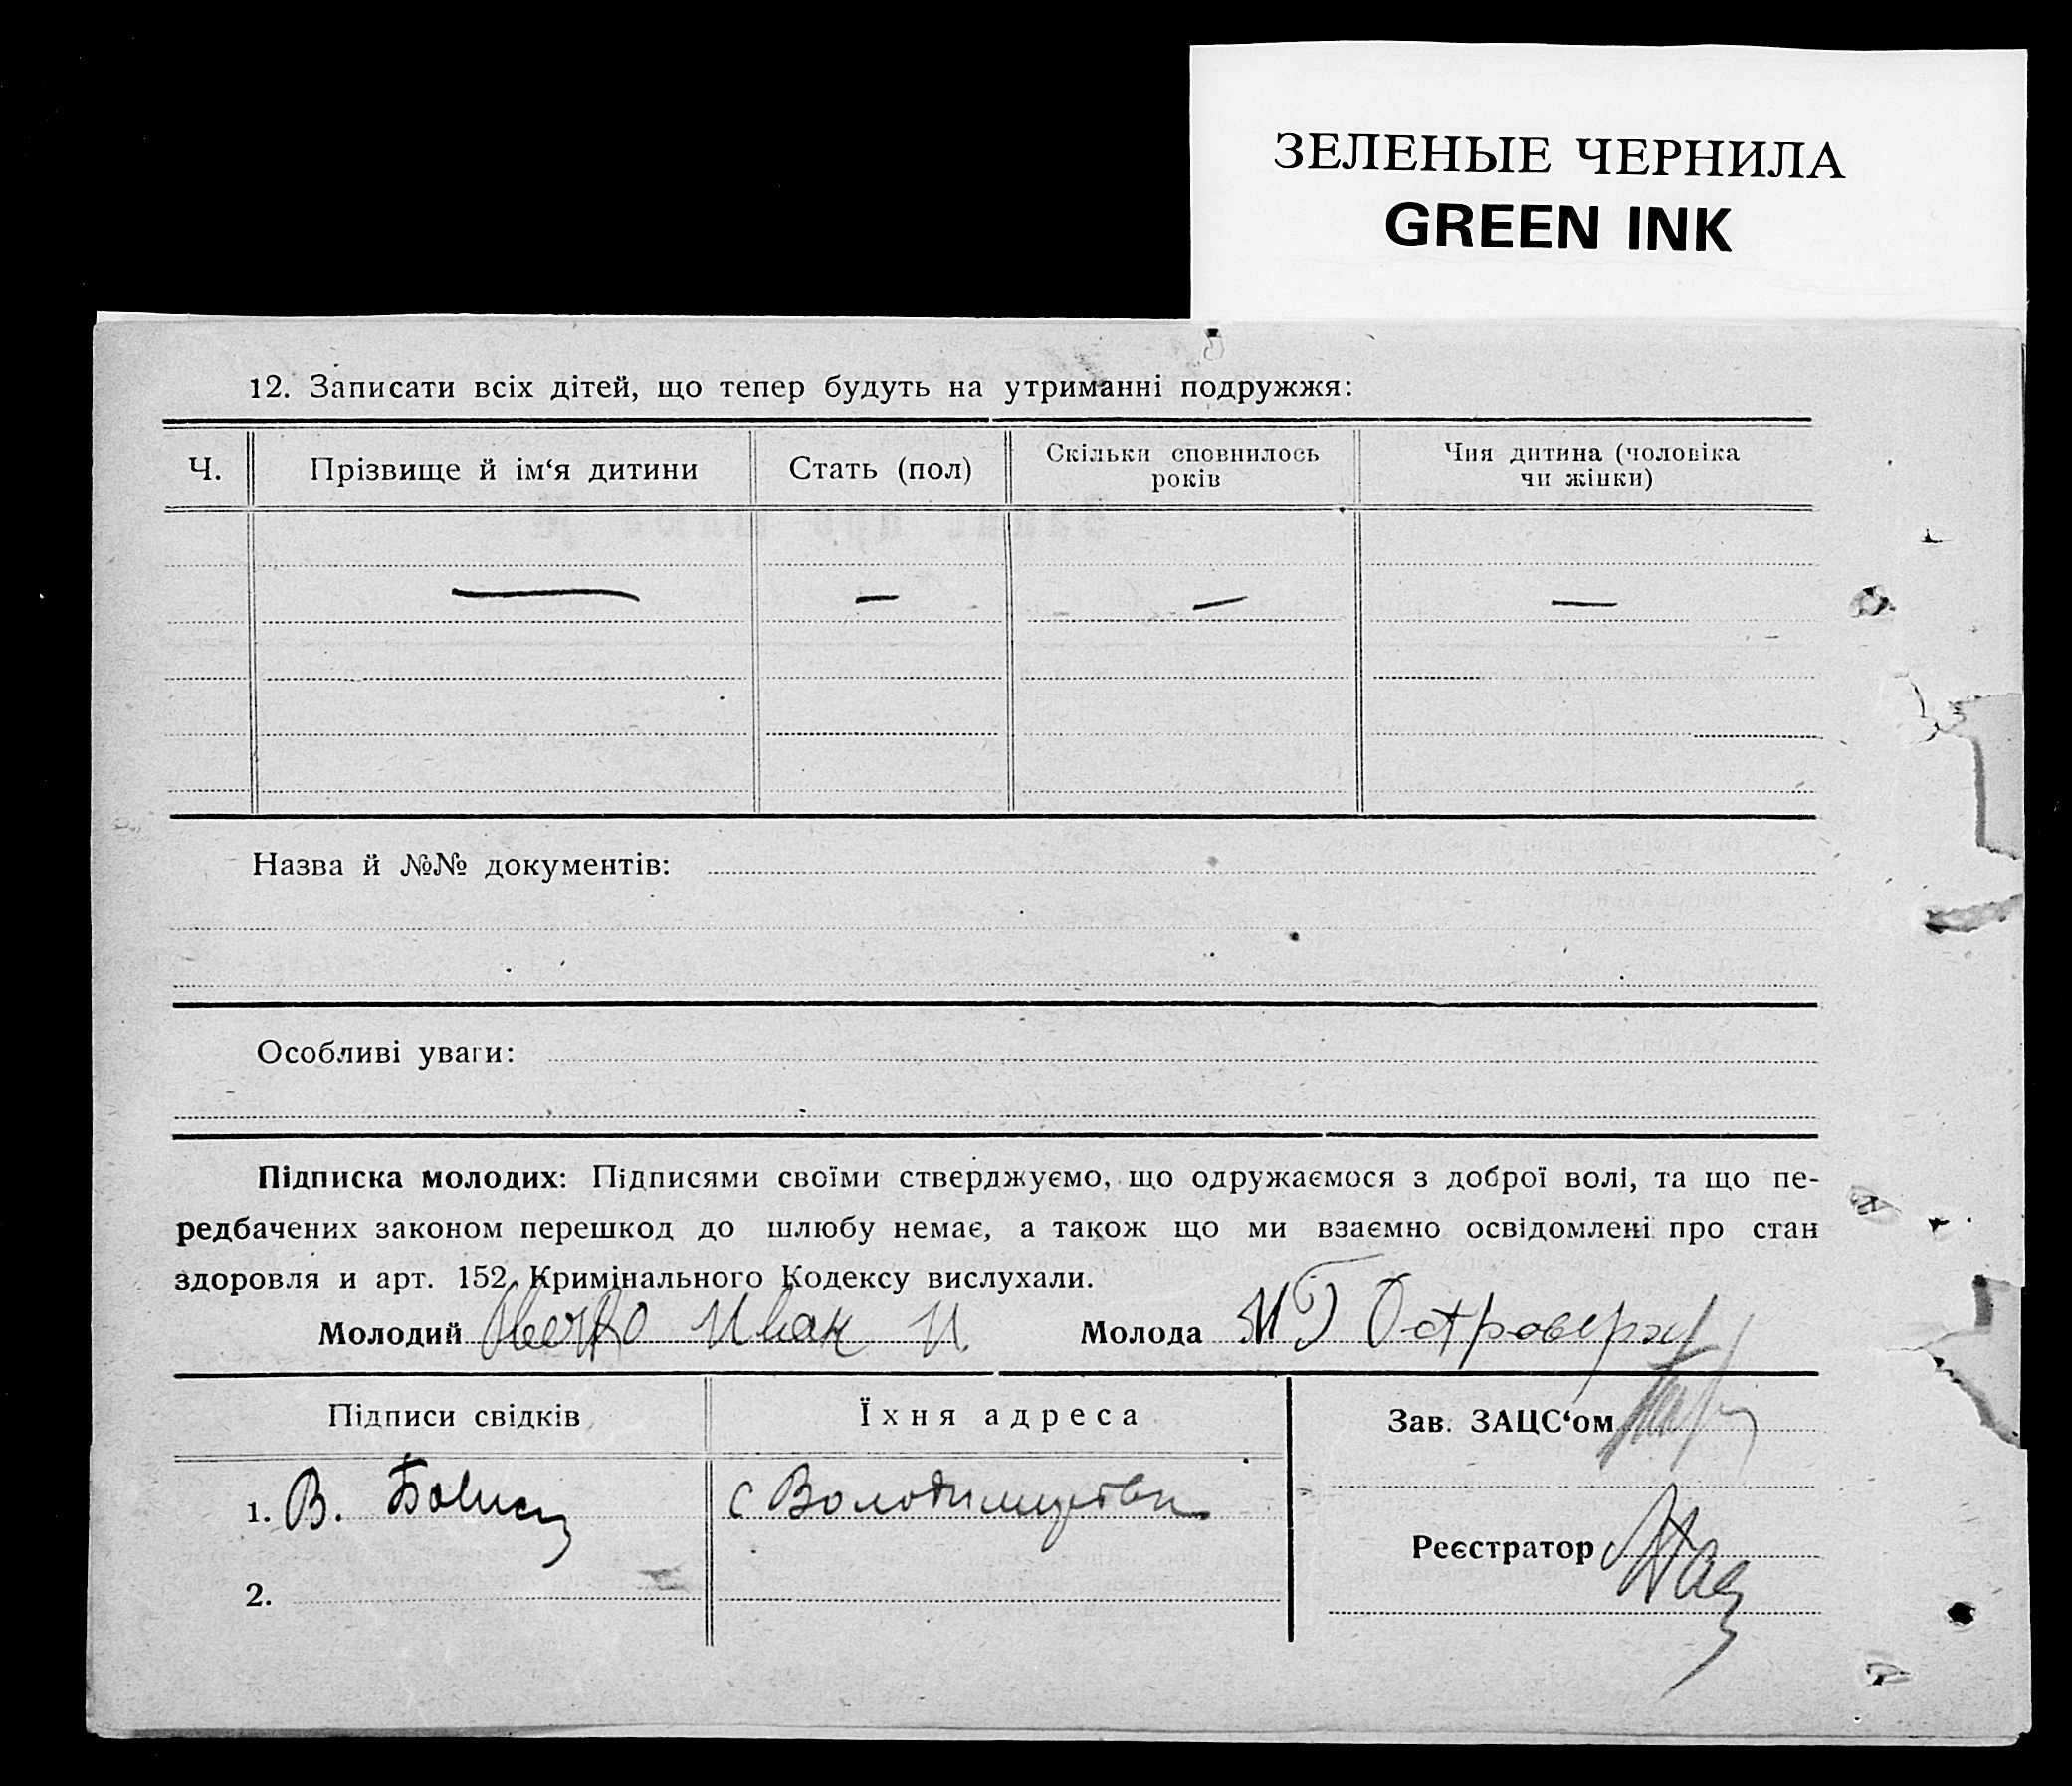 ЗЕЛЕНЫЕ ЧЕРНИЛА
GREEN INK
12. Записати всіх дітей, що тепер будуть на утриманні подружжя:
Ч. Прізвище й ім‘я дитини Стать (пол) Скільки сповнилось років Чия дитина (чоловіка чи жінки)
— — — —
Назва й №№ документів:
Особливі уваги:
Підписка молодих: Підписями своїми стверджуємо, що одружаємося з доброї волі, та що пе-
редбачених законом перешкод до шлюбу немає, а також що ми взаємно освідомлені про стан
здоровля и арт. 152 Кримінального Кодексу вислухали.
Молодий Иван И Молода
Підписи свідків Їхня адреса Зав. ЗАЦС‘ом
1. В. с
Реєстратор
2.